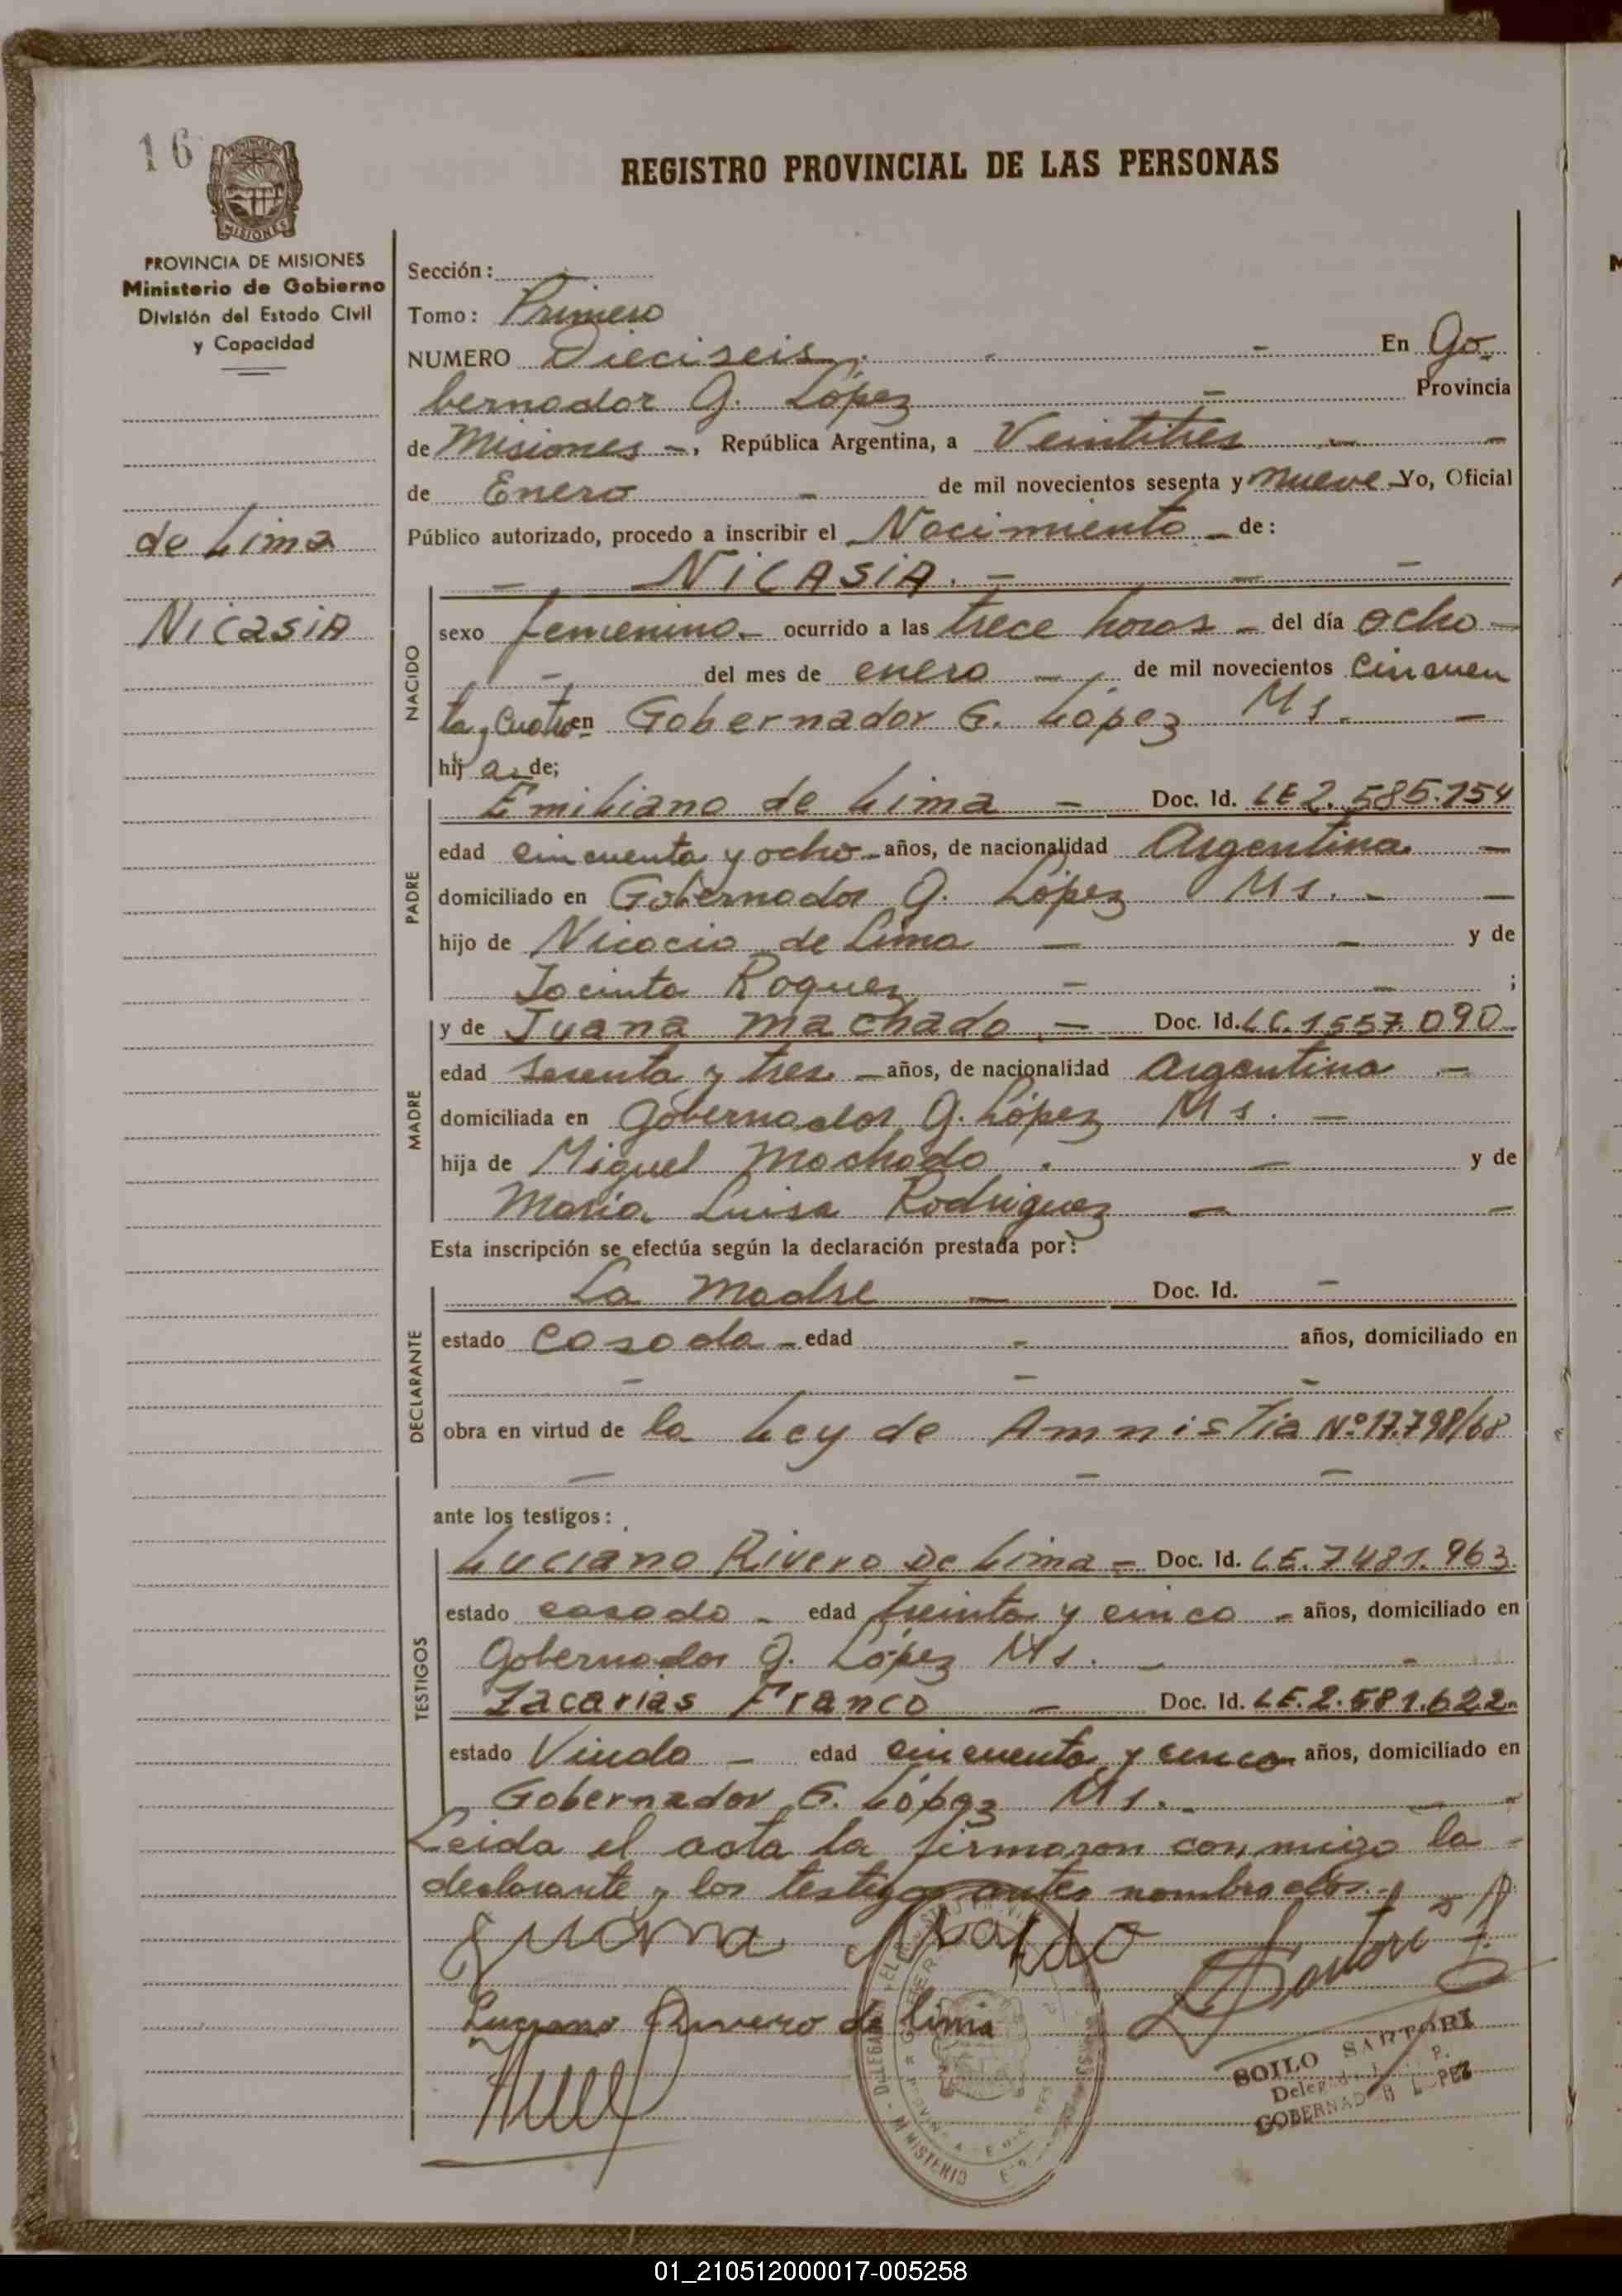 16
MISIONES
PROVINCIA DE MISIONES
Ministerio de Gobierno
División del Estado Civil
y Capacidad
de Lima
Nicasia
REGISTRO PROVINCIAL DE LAS PERSONAS
Sección:
Tomo: Primero
NUMERO Dieciseis En Go
bernador G. López Provincia
de Misiones -, República Argentina, a Veintitres
de Enero de mil novecientos sesenta y nueve Yo, Oficial
Público autorizado, procedo a inscribir el Nacimiento de:
NICASIA.
NACIDO
sexo femenino ocurrido a las trece horas del día ocho
del mes de enero de mil novecientos cincuen
ta y cuatro en Gobernador G. López Ms.
hij a de;
PADRE
Emiliano de Lima Doc. Id. LE 2.585.154
edad cincuenta y ocho años, de nacionalidad Argentina.
domiciliado en Gobernador G. López Ms.
hijo de Nicacio de Lima y de
Jacinta Roquez ;
MADRE
y de Juana Machado Doc. Id. LC.1557.090
edad sesenta y tres años, de nacionalidad Argentina
domiciliada en Gobernador G. López Ms.
hija de Miguel Machado y de
Maria Luisa Rodriguez
Esta inscripción se efectúa según la declaración prestada por:
DECLARANTE
La Madre Doc. Id.
estado casada edad años, domiciliado en
obra en virtud de la Ley de Amnistia Nº 17.798/68
ante los testigos:
TESTIGOS
Luciano Rivero De Lima Doc. Id. LE.7481.963.
estado casado edad treinta y cinco años, domiciliado en
Gobernador G. López Ms.
Zacarias Franco Doc. Id. LE.2.581.622
estado Viudo edad cincuenta y cinco años, domiciliado en
Gobernador G. López Ms.
Leida el acta la firmaron conmigo la
declarante y los testigos antes nombrados.
Juana
Luciano Rivero de lima
Sartori
SOILO SARTORI
GOBERNADOR LOPEZ
MINISTERIO
01_210512000017-005258